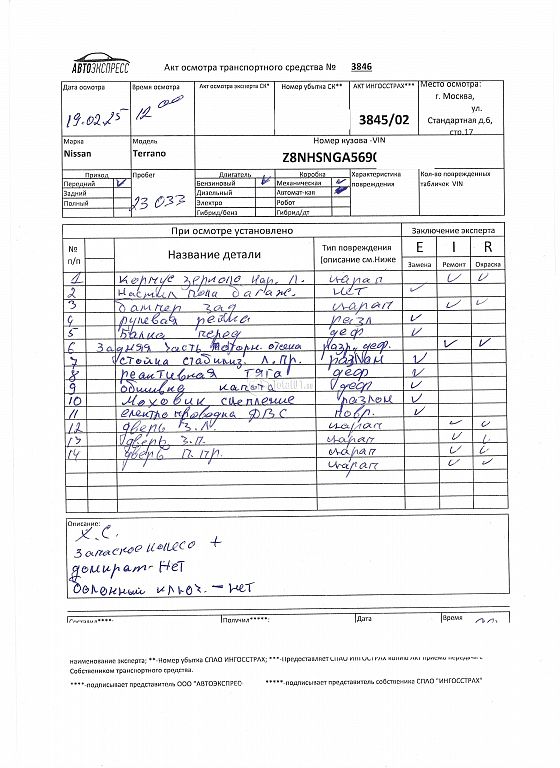 АВТОЭКСПРЕСС
Акт осмотра транспортного средства № 3846
Дата осмотра Время осмотра Акт осмотра эксперта СК* Номер убытка СК** АКТ ИНГОССТРАХ*** Место осмотра:
19.02.25 12 00 3845/02 г. Москва,
ул.
Стандартная д.6,
стр.17
Марка Модель Номер кузова -VIN
Nissan Terrano Z8NHSNGA569(
Привод Пробег Двигатель Коробка Характеристика повреждения Кол-во поврежденных табличек VIN
Передний Бензиновый Механическая
Задний Дизельный Автомат-кая
Полный 23 033 Электро Робот
Гибрид/бенз Гибрид/дт
При осмотре установлено Заключение эксперта
№ п/п Название детали Тип повреждения (описание см.Ниже E I R
Замена Ремонт Окраска
1 корпус зеркала нар. Л. царап
2 настил пола багаж. нет
3 бампер зад царап
4 рулевая рейка разл
5 балка перед деф
6 задняя часть моторн. отсека разр. деф.
7 стойка стабилиз. л. пр. разлом
8 реактивная тяга деф
9 обшивка капота деф
10 Маховик сцепление разлом
11 електропроводка ДВС повр.
12 дверь З.Л. царап
13 дверь З.П. царап
14 дверь П.пр. царап
царап
Описание:
Х.С.
Запасное колесо +
домкрат - нет
болонный ключ. - нет
Составил****: Получил*****: Дата Время
наименование эксперта; **-Номер убытка СПАО ИНГОССТРАХ; ***-Предоставляет СПАО ИНГОССТРАХ
Собственником транспортного средства.
****-подписывает представитель ООО "АВТОЭКСПРЕС *****-подписывает представитель собственика СПАО "ИНГОССТРАХ"